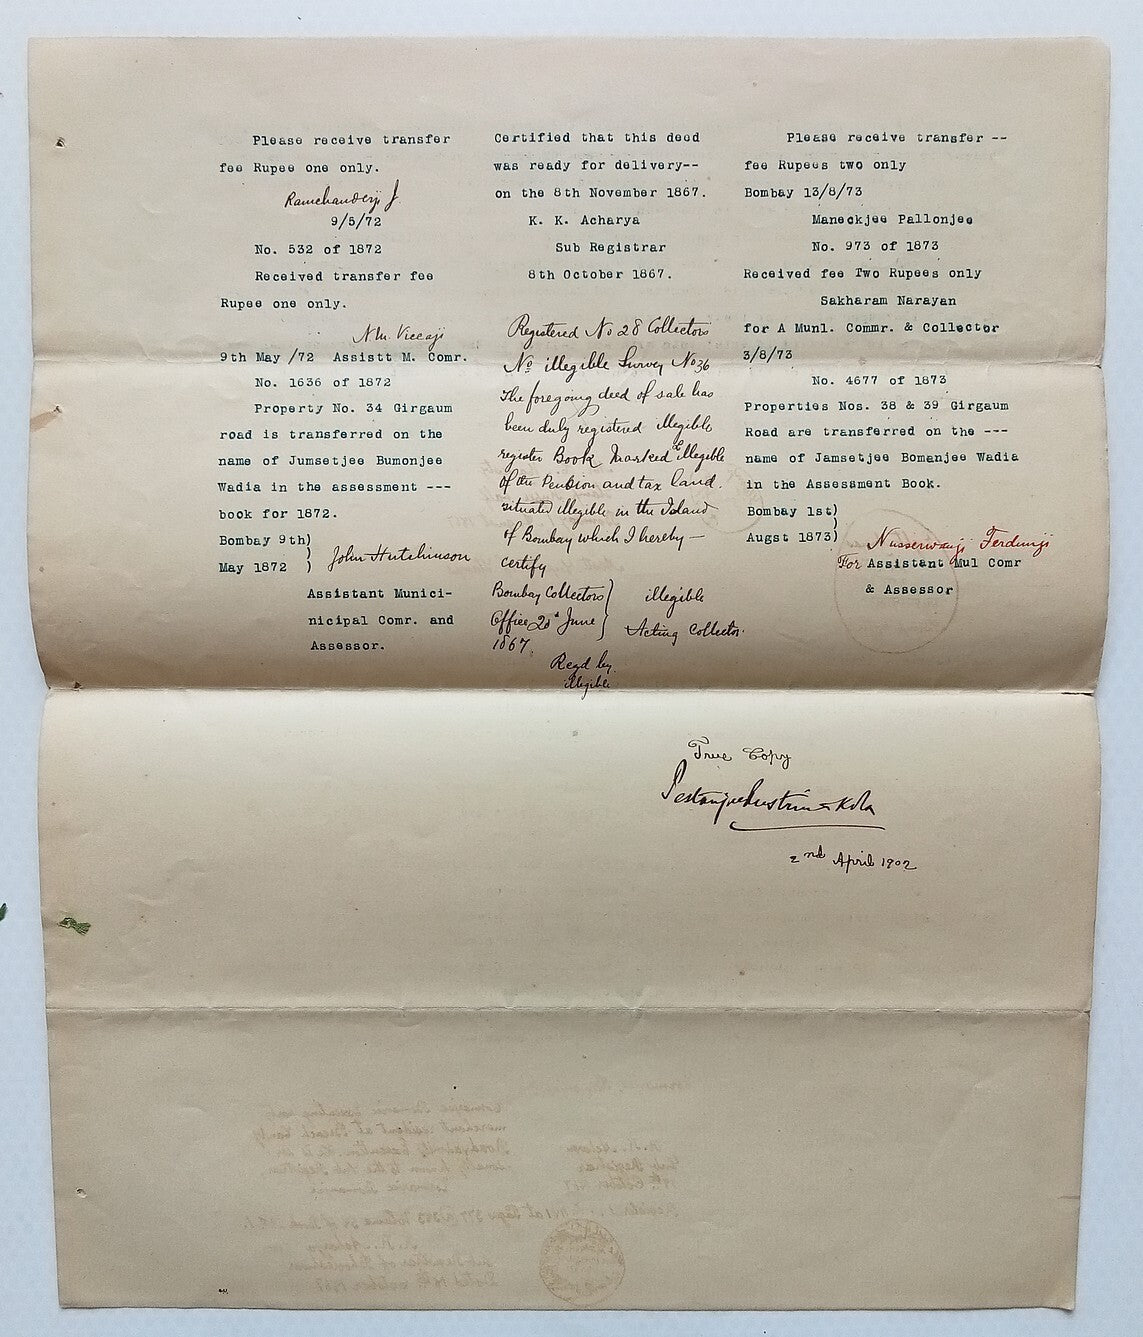 Please receive transfer
fee Rupee one only.
Ramchanderji J.
9/5/72
No. 532 of 1872
Received transfer fee
Rupee one only.
N.M. Viccaji
9th May /72 Assistt M. Comr.
No. 1636 of 1872
Property No. 34 Girgaum
road is transferred on the
name of Jumsetjee Bumonjee
Wadia in the assessment ---
book for 1872.
Bombay 9th)
)
May 1872 ) John Hutchinson
Assistant Munici-
nicipal Comr. and
Assessor.
Certified that this deed
was ready for delivery--
on the 8th November 1867.
K. K. Acharya
Sub Registrar
8th October 1867.
Registered No 28 Collectors
No illegible Survey No 36
The foregoing deed of sale has
been duly registered illegible
register Book Marked illegible
of the Pension and tax land.
situated illegible in the Island
of Bombay which I hereby —
certify
Bombay Collectors } illegible
Office June } Acting Collector.
1867.
Regd by.
illegible
Please receive transfer --
fee Rupees two only
Bombay 13/8/73
Maneckjee Pallonjee
No. 973 of 1873
Received fee Two Rupees only
Sakharam Narayan
for A Munl. Commr. & Collector
3/8/73
No. 4677 of 1873
Properties Nos. 38 & 39 Girgaum
Road are transferred on the ---
name of Jamsetjee Bomanjee Wadia
in the Assessment Book.
Bombay 1st)
)
Augst 1873) Nusserwanji Ferdunji
For Assistant Mul Comr
& Assessor
True Copy
2nd April 1902